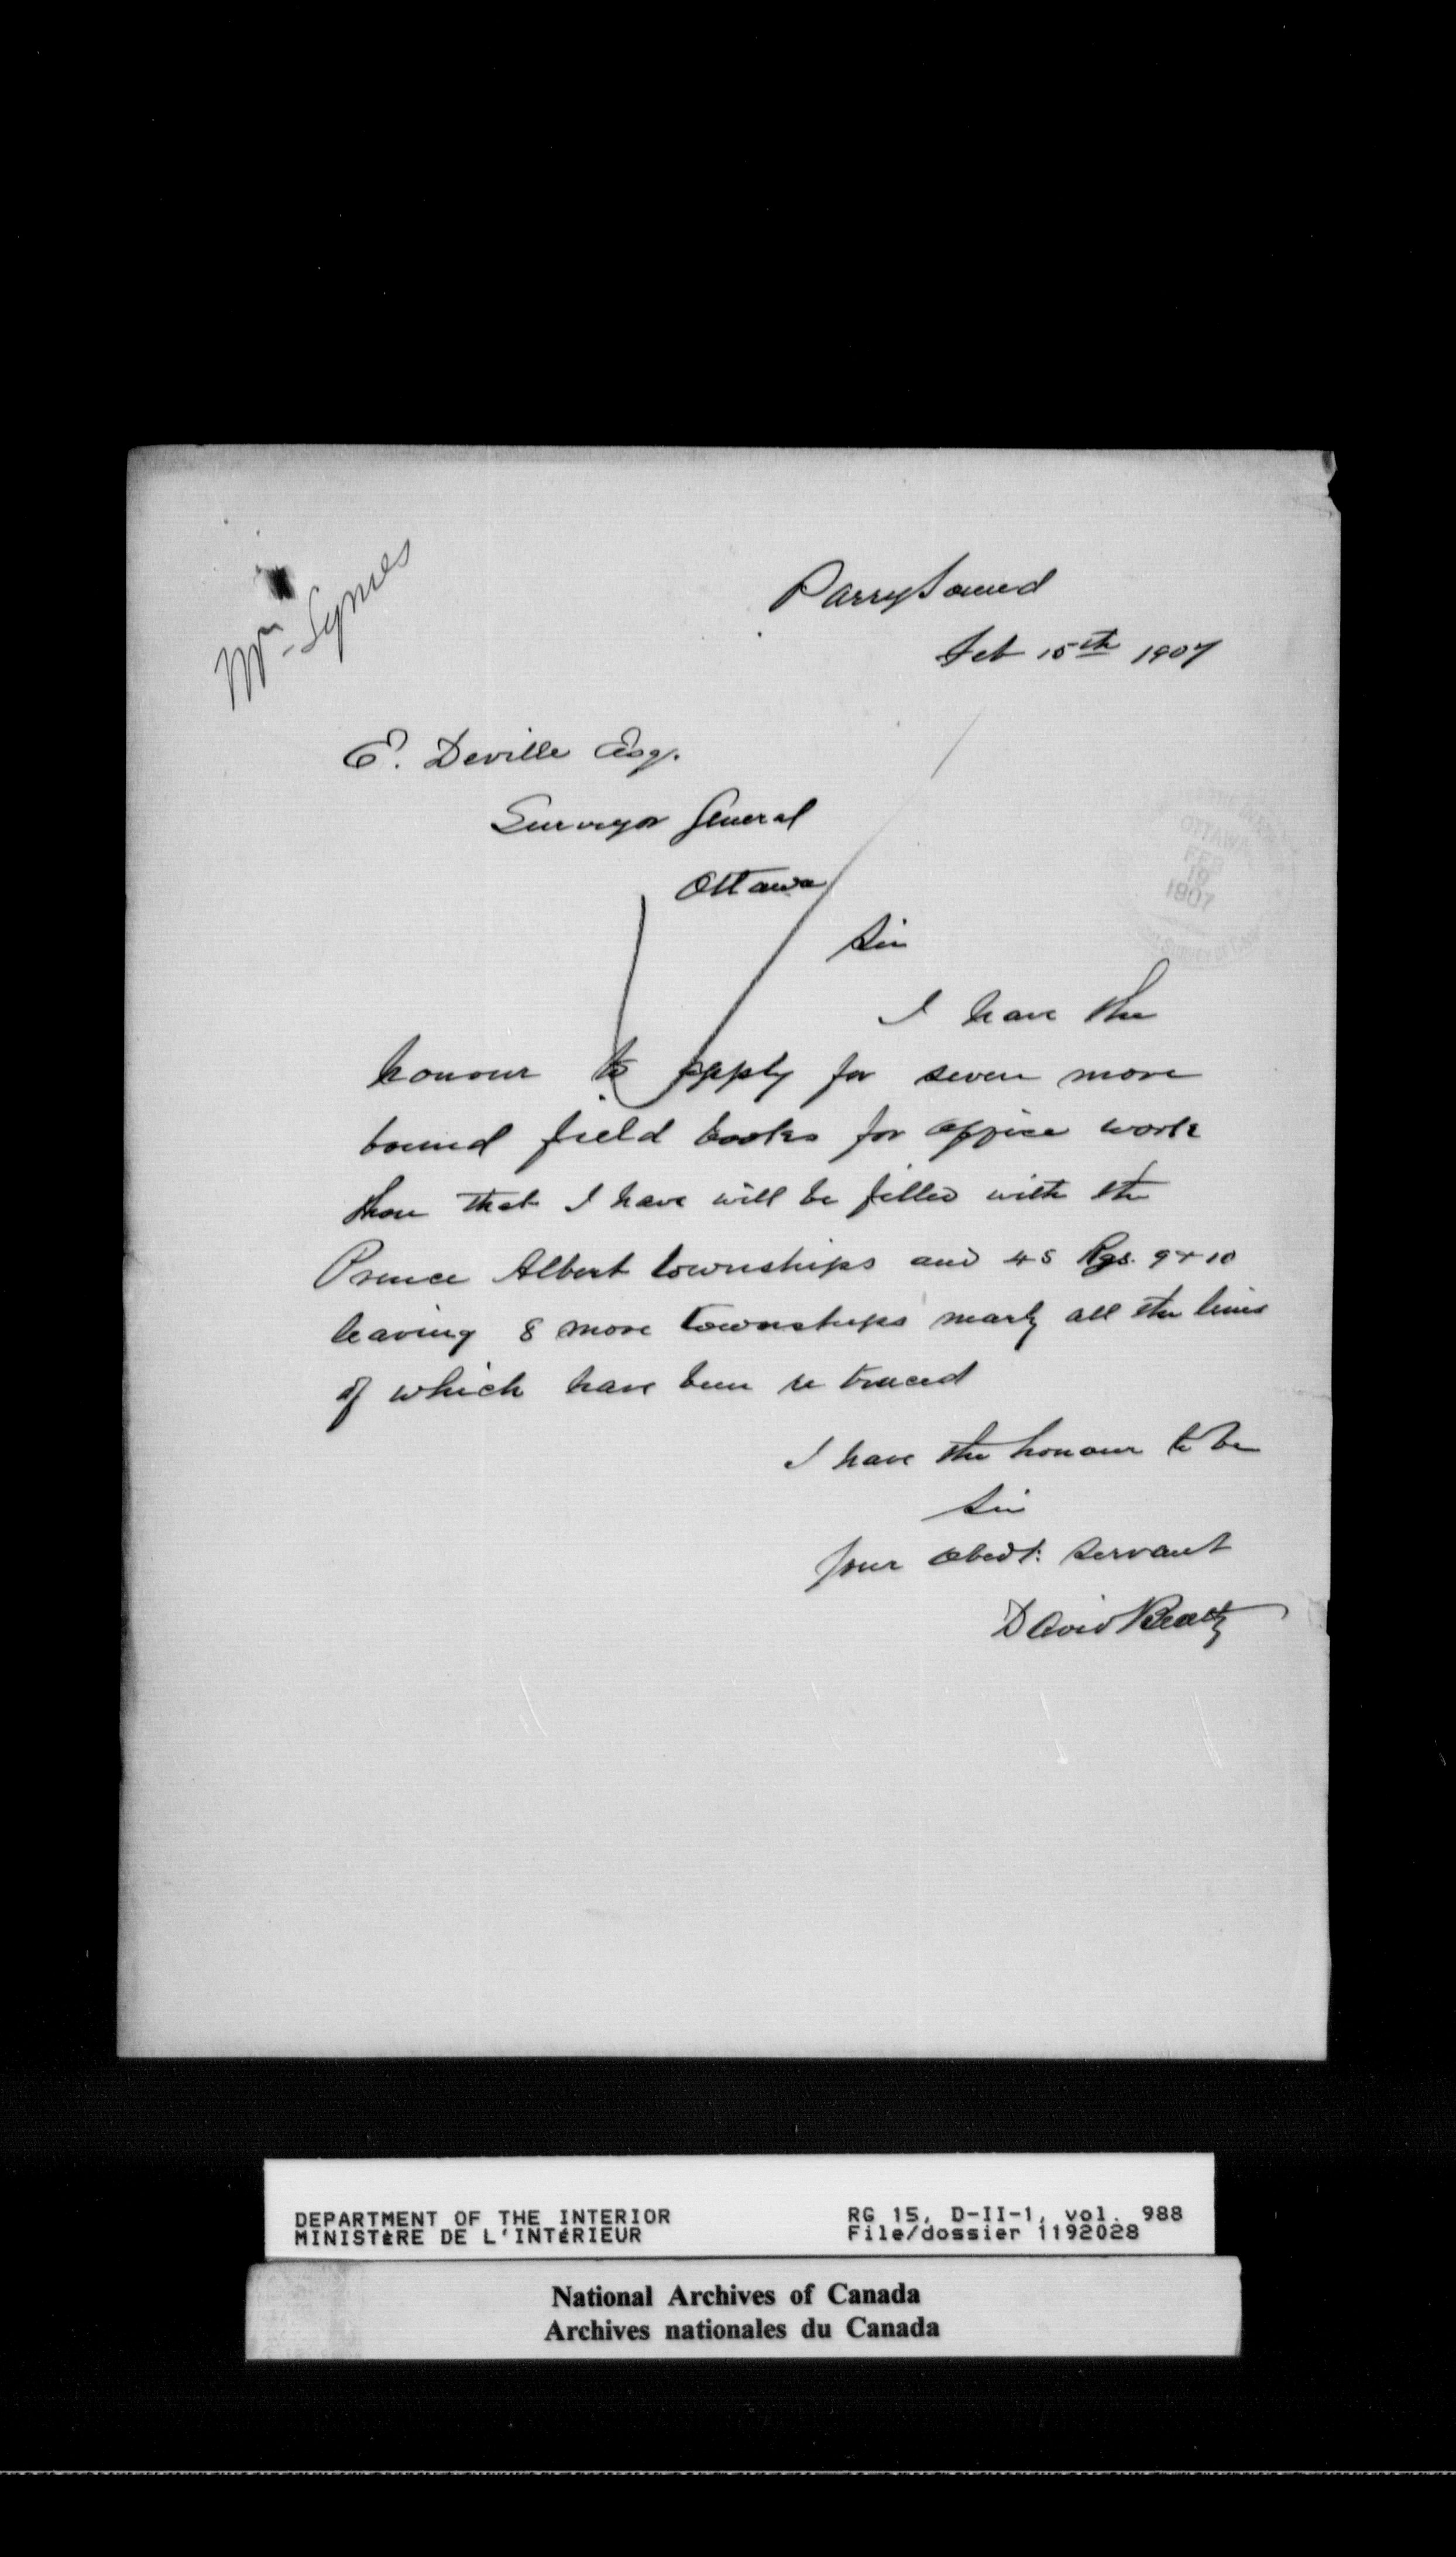 Mr. Symes
Parry Sound
Feb 15th 1907
E. Deville Esq.
Surveyor General
Ottawa
OTTAWA
FEB
19
1907
Sir
I have the
honour to apply for seven more
bound field books for office work
those that I have will be filled with the
Prince Albert townships and 45 Rgs. 9 + 10
leaving 8 more townships nearly all the lines
of which have been re traced
I have the honour to be
Sir
Your obedt. servant
David Beatty
DEPARTMENT OF THE INTERIOR
MINISTÈRE DE L'INTÉRIEUR
RG 15, D-II-1, vol. 988
File/dossier 1192028
National Archives of Canada
Archives nationales du Canada